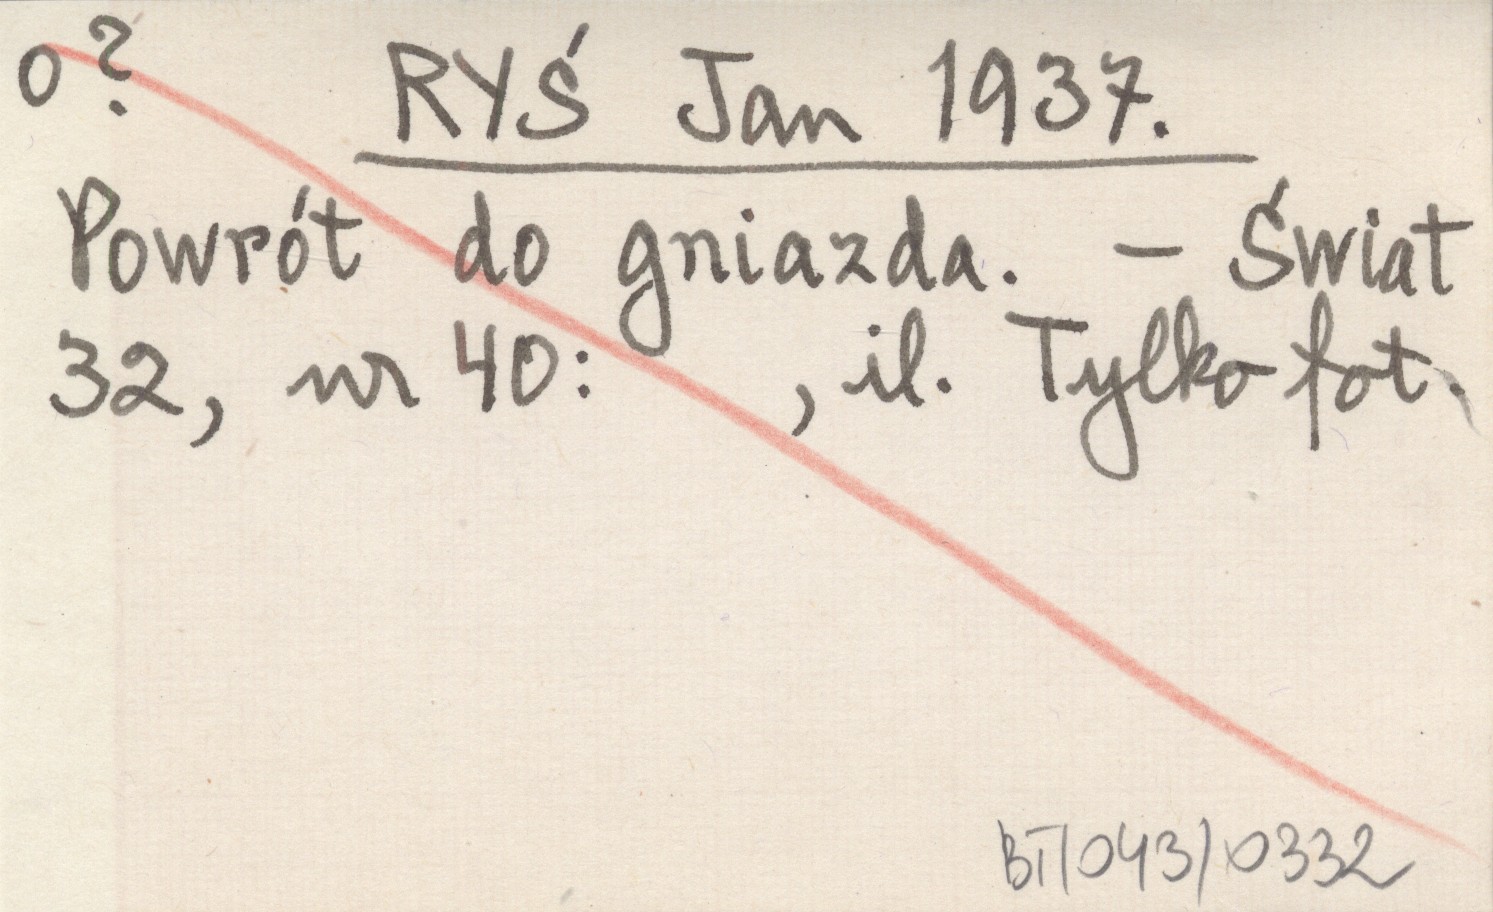 o?
RYŚ Jan 1937.
Powrót do gniazda. – Świat
32, nr 40: , il. Tylko fot.
BT/043/0332